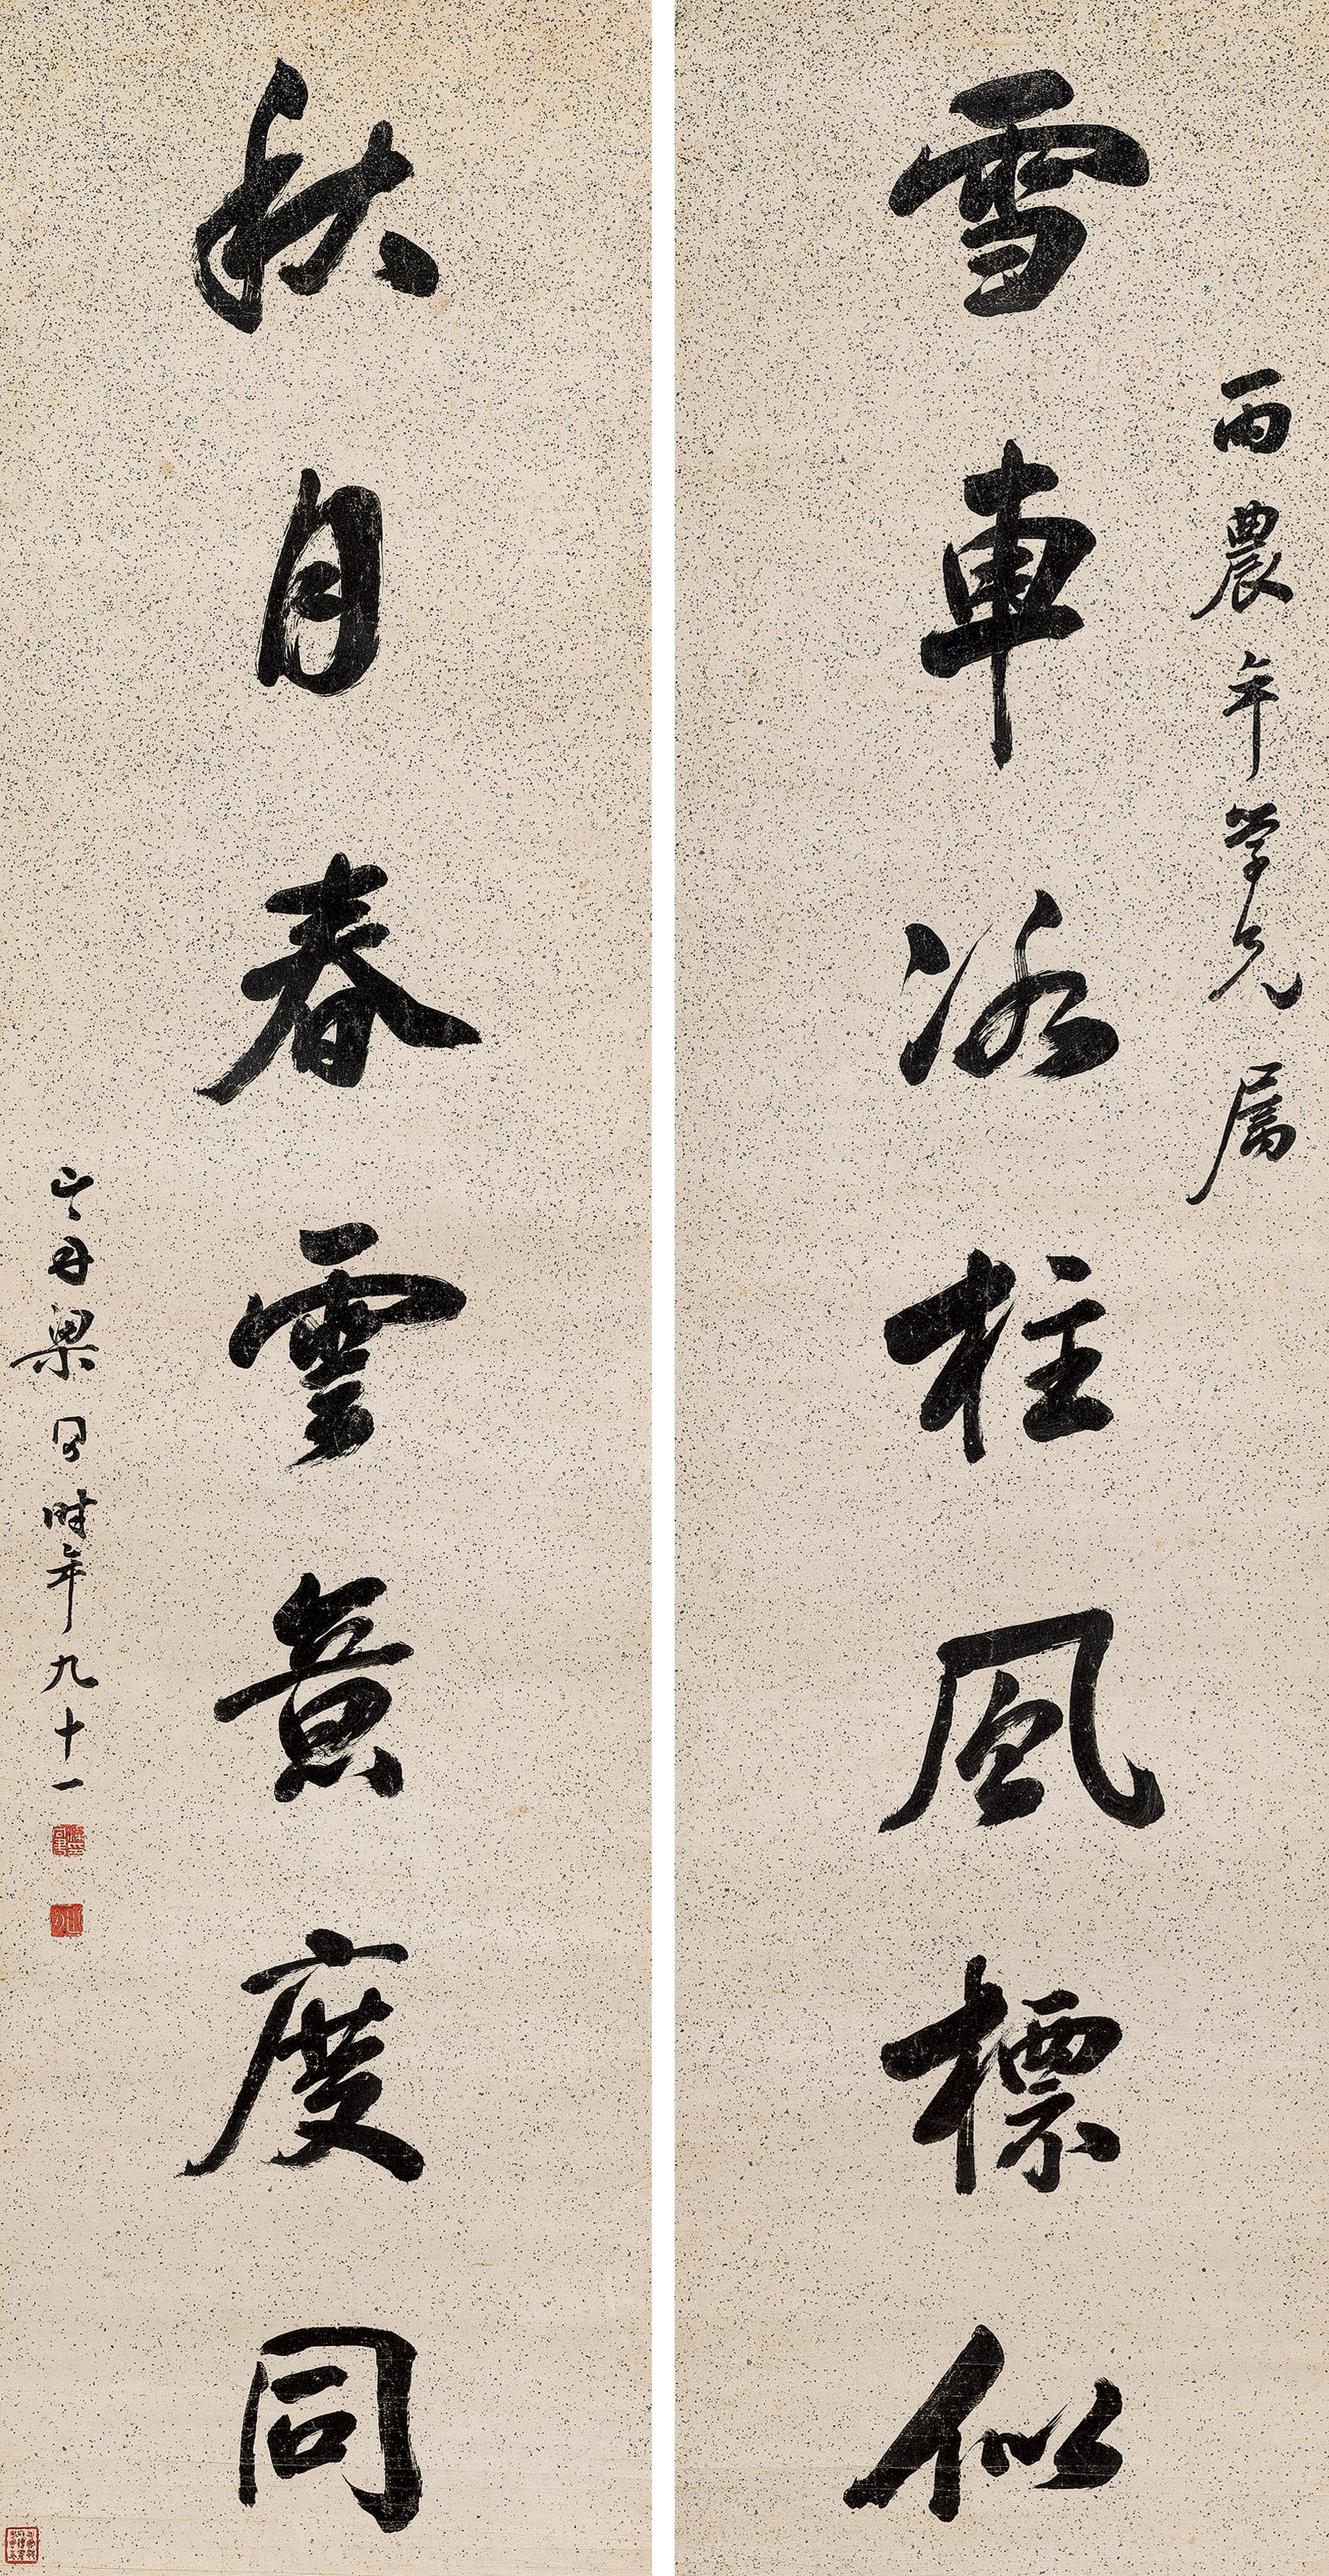 雨農年学兄属
雪車冰柱風標似
秋月春雲意度同
山舟梁同書時年九十一